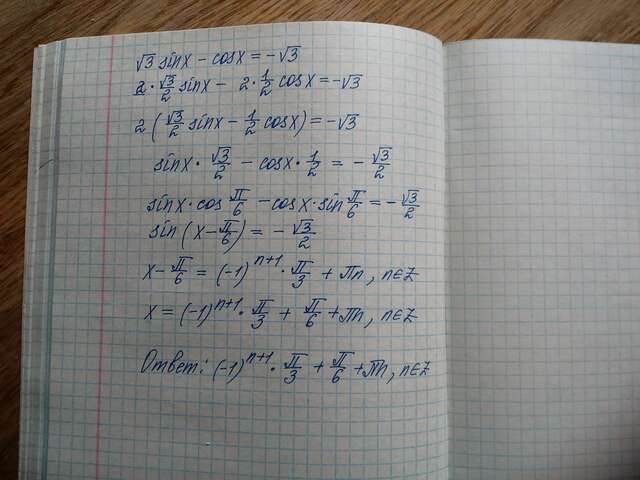 √3 sinx - cosx = -√3
2·√3/2 sinx - 2·1/2 cosx = -√3
2(√3/2 sinx - 1/2 cosx) = -√3
sinx·√3/2 - cosx·1/2 = -√3/2
sinx·cos π/6 - cosx·sin π/6 = -√3/2
sin(x - π/6) = -√3/2
x - π/6 = (-1)ⁿ⁺¹·π/3 + πn, n∈Z
x = (-1)ⁿ⁺¹·π/3 + π/6 + πn, n∈Z
Ответ: (-1)ⁿ⁺¹·π/3 + π/6 + πn, n∈Z